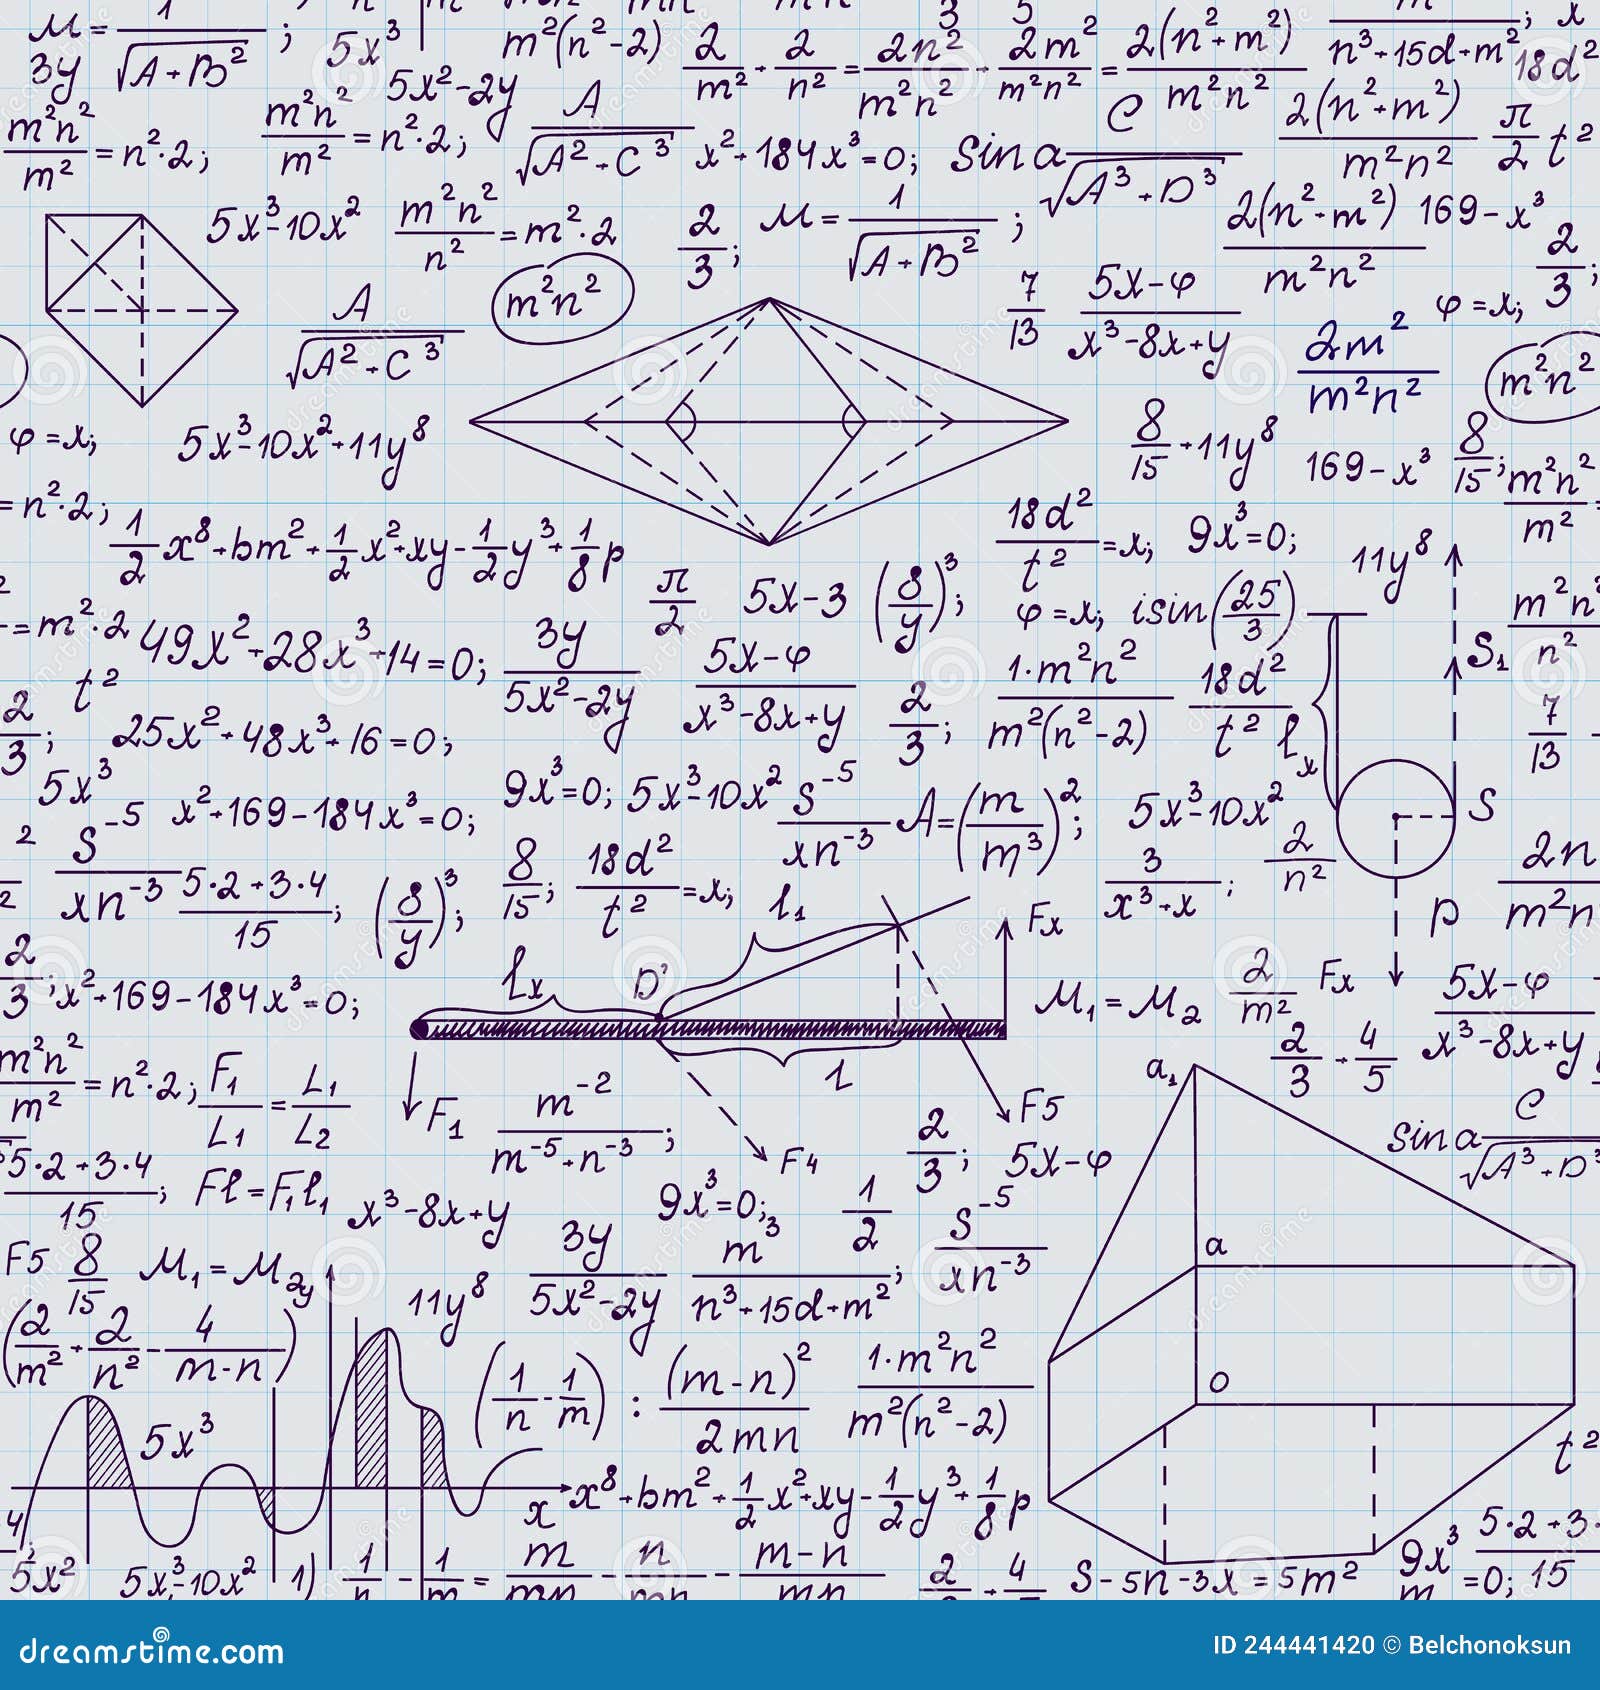 M = 1/√(A+B²) ;
5x³
m²(n²-2)
2/m² + 2/n² = 2n²/m²n² + 2m²/m²n² = 2(n²+m²)/m²n²
n³+15d+m² ;
x
18d²
3y
5x²-2y
m²n²/m² = n²·2;
m²n²/m² = n²·2;
A/√(A²+C³)
x²+184x³=0;
Sin a C/√(A³+D³)
2(n²+m²)/m²n²
π/2 t²
5x³-10x²
m²n²/n² = m²·2
2/3;
M = 1/√(A+B²) ;
2(n²+m²)/m²n²
169-x³
2/3;
A/√(A²+C³)
m²n²
7/13
5x-φ/x³-8x+y
2m²/m²n²
φ=x;
m²n²
φ=x;
5x³-10x²+11y⁸
8/15+11y⁸
169-x³
8/15;
m²n²/m² =
=n²·2;
1/2x⁸+bm²+1/2x²+xy-1/2y³+1/8p
18d²/t²=x;
9x³=0;
11y⁸
=m²·2
49x²+28x³+14=0;
3y/5x²-2y
π/2
5x-3
(8/y)³;
φ=x;
isin(25/3)
S₁
m²n²/n²
t²
5x-φ/x³-8x+y
2/3;
1·m²n²/m²(n²-2)
18d²/t²
lx
7/13
2/3;
25x²+48x³+16=0;
5x³
S⁻⁵/xn⁻³
x²+169-184x³=0;
9x³=0;
5x³-10x²
S⁻⁵/xn⁻³
A=(m/m³)²;
5x³-10x²
S
5·2+3·4/15;
(8/y)³;
8/15;
18d²/t²=x;
l₁
3/x³+x;
2/n²
p
2n/m²n
2/3;
x²+169-184x³=0;
lx
D'
Fx
M₁=M₂
2/m²
Fx
5x-φ/x³-8x+y
m²n²/m²=n²·2;
F₁/L₁=L₁/L₂
F₁
m⁻²/m⁻⁵+n⁻³;
l
F4
F5
2/3;
5x-φ
2/3+4/5
a₁
Sin a C/√(A³+D³
5·2+3·4/15;
Fl=F₁l₁
x³-8x+y
9x³=0;
1/2
S⁻⁵/xn⁻³
F5
8/15
M₁=M₂
y
11y⁸
3y/5x²-2y
m³/n³+15d+m²;
a
(2/m²+2/n²-4/m-n)
(1/n-1/m) : (m-n)²/2mn
1·m²n²/m²(n²-2)
O
5x³
t²
x
x⁸+bm²+1/2x²+xy-1/2y³+1/8p
5x²
5x³-10x²
1) 1/n-1/m=m/mn-n/mn-m-n/mn
2/3+4/
S-5n-3x=5m²
9x³
=0;
5·2+3·
15
dreamstime.com
ID 244441420 © Belchonoksun